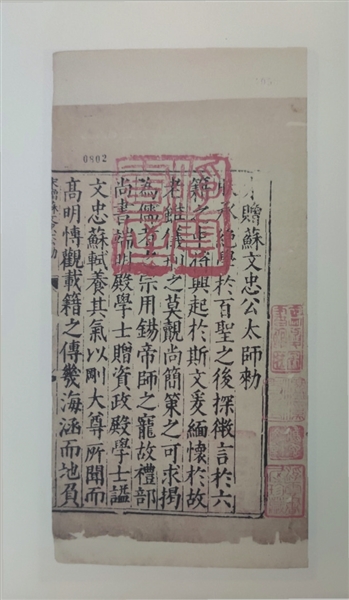 0802
贈蘇文忠公太師勅
朕承絕學於百聖之後探微言於六
籍之中將興起於斯文爰緬懷於故
老雖儀刑之莫覿尚簡策之可求揭
為儒者之宗用錫帝師之寵故禮部
尚書端明殿學士贈資政殿學士諡
文忠蘇軾養其氣以剛大尊所聞而
高明愽觀載籍之傳幾海涵而地負